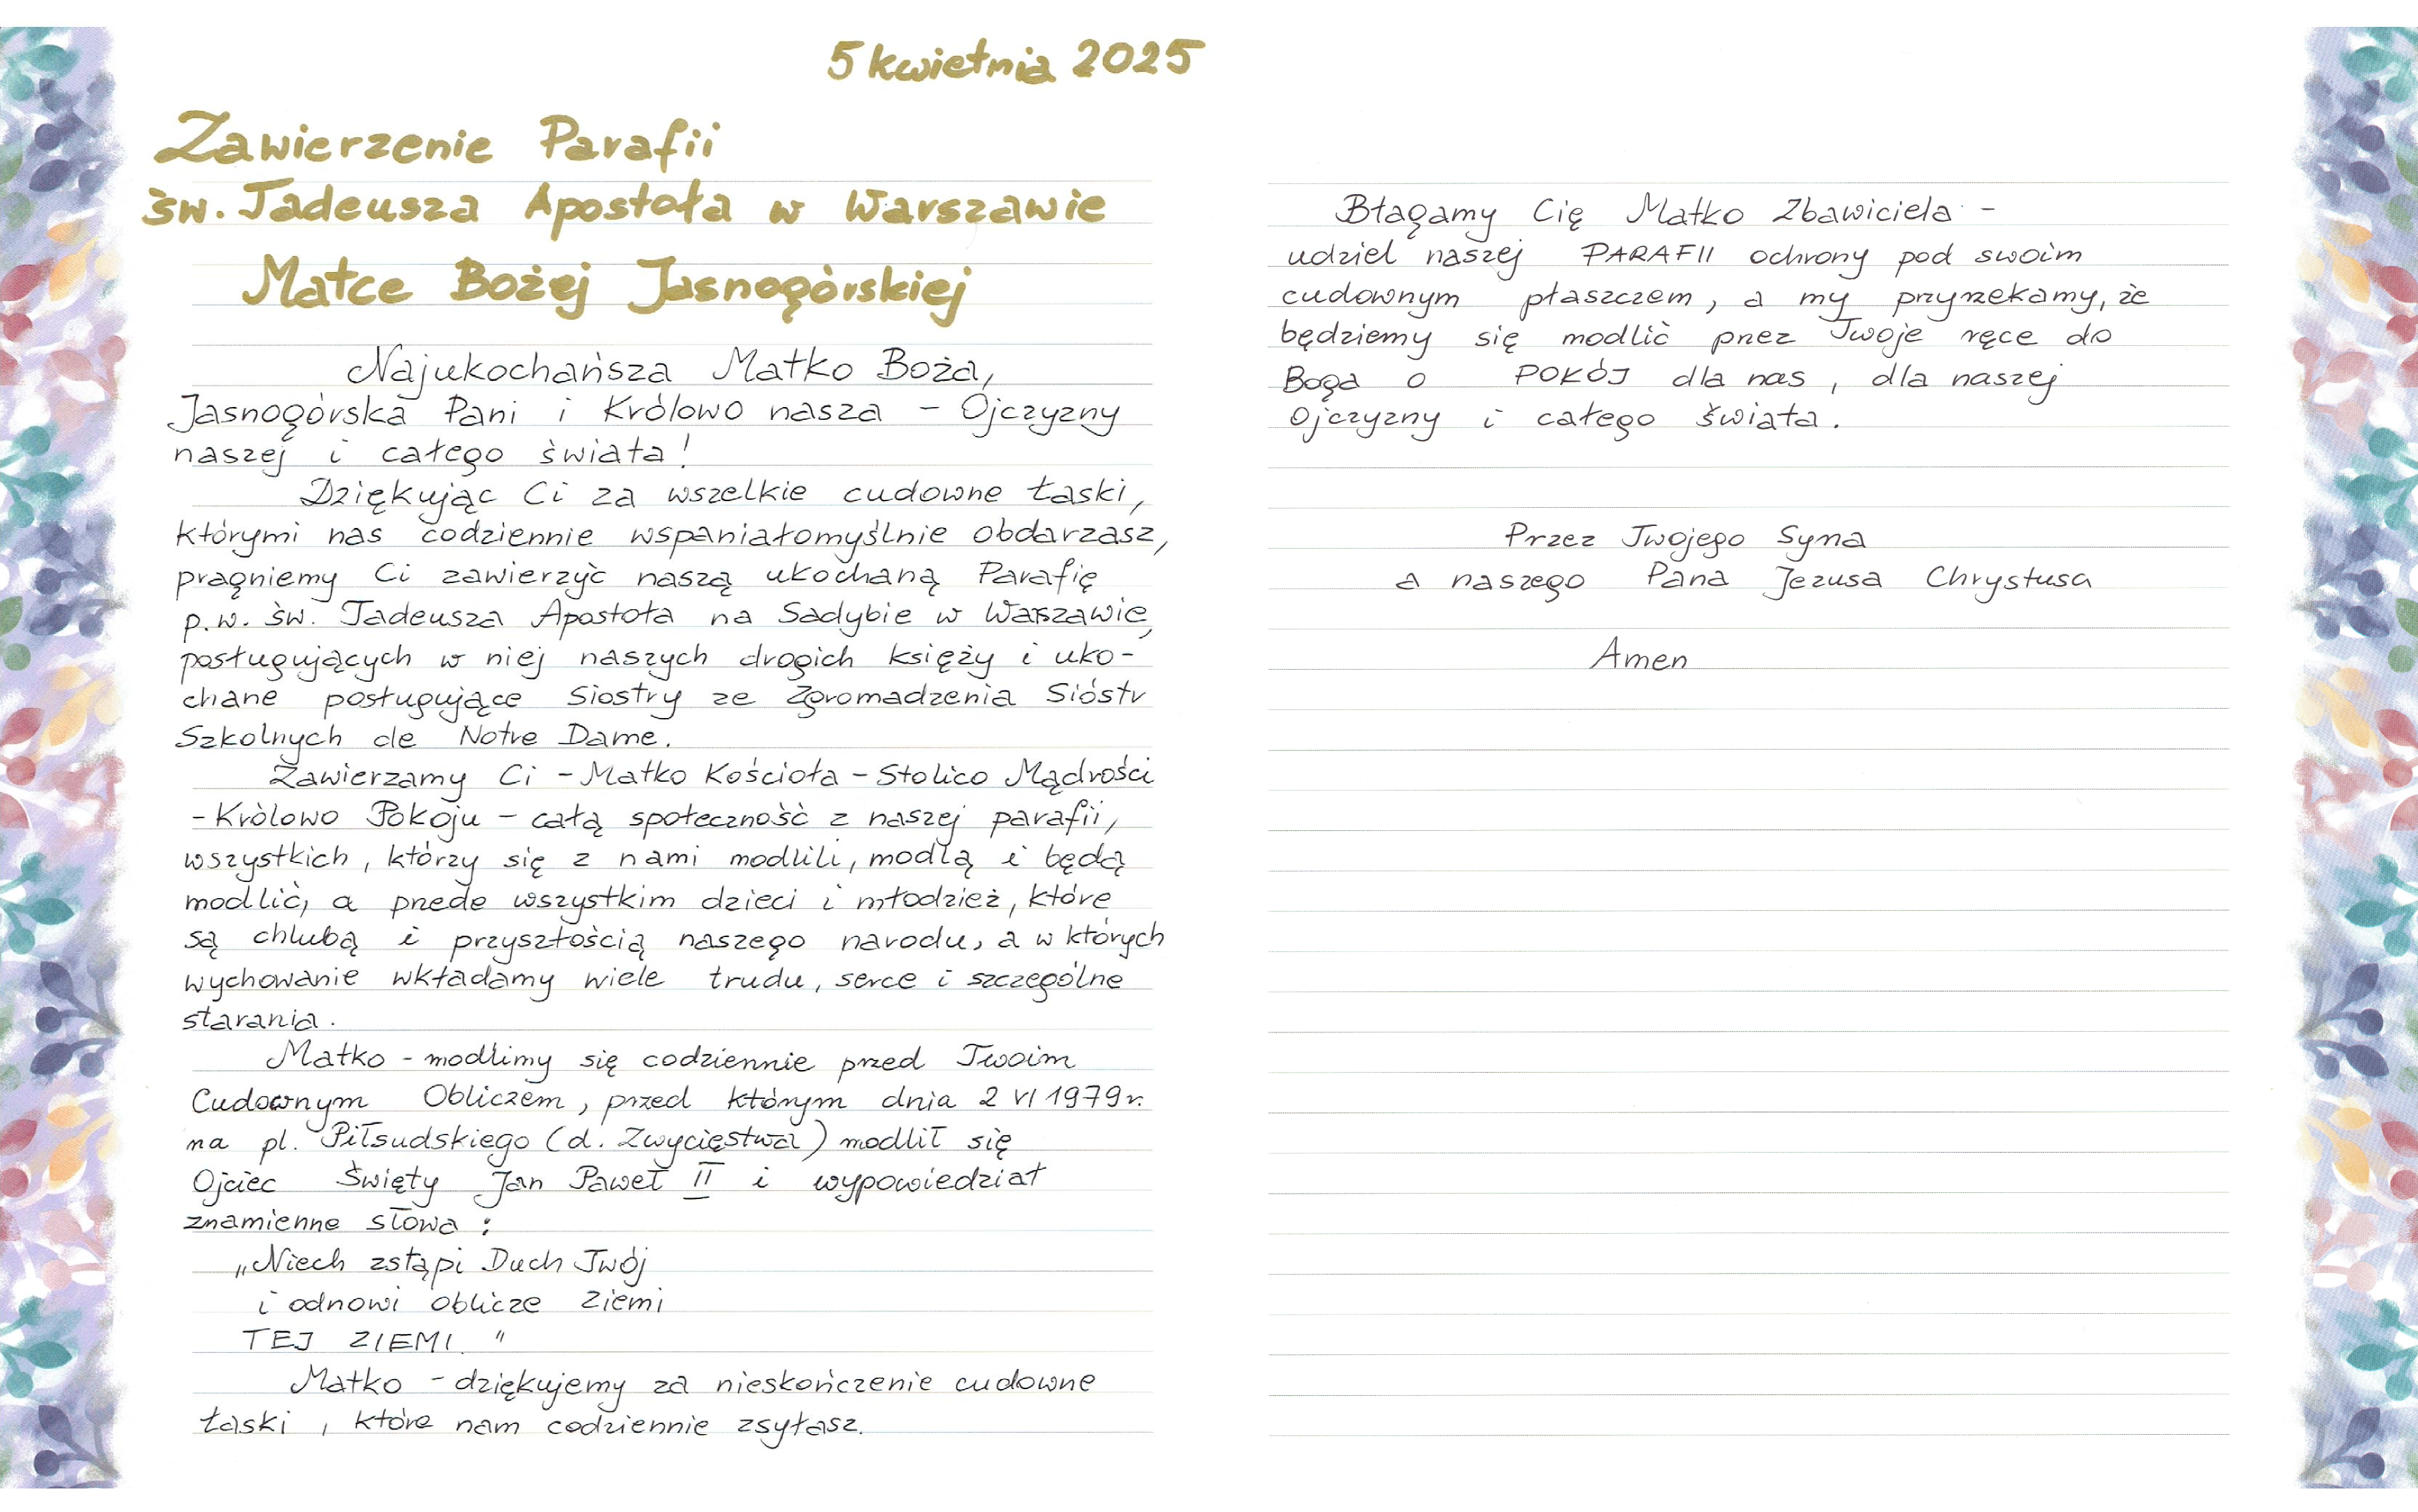 5 kwietnia 2025
Zawierzenie Parafii
św. Tadeusza Apostoła w Warszawie
Matce Bożej Jasnogórskiej
Najukochańsza Matko Boża,
Jasnogórska Pani i Królowo nasza – Ojczyzny
naszej i całego świata!
Dziękując Ci za wszelkie cudowne łaski,
którymi nas codziennie wspaniałomyślnie obdarzasz,
pragniemy Ci zawierzyć naszą ukochaną Parafię
p.w. św. Tadeusza Apostoła na Sadybie w Warszawie,
posługujących w niej naszych drogich księży i uko-
chane posługujące Siostry ze Zgromadzenia Sióstr
Szkolnych de Notre Dame.
Zawierzamy Ci – Matko Kościoła – Stolico Mądrości
– Królowo Pokoju – całą społeczność z naszej parafii,
wszystkich, którzy się z nami modlili, modlą i będą
modlić, a przede wszystkim dzieci i młodzież, które
są chlubą i przyszłością naszego narodu, a w których
wychowanie wkładamy wiele trudu, serce i szczególne
starania.
Matko – modlimy się codziennie przed Twoim
Cudownym Obliczem, przed którym dnia 2 VI 1979 r.
na pl. Piłsudskiego (d. Zwycięstwa) modlił się
Ojciec Święty Jan Paweł II i wypowiedział
znamienne słowa:
„Niech zstąpi Duch Twój
i odnowi oblicze ziemi
TEJ ZIEMI."
Matko – dziękujemy za nieskończenie cudowne
łaski, które nam codziennie zsyłasz.
Błagamy Cię Matko Zbawiciela –
udziel naszej PARAFII ochrony pod swoim
cudownym płaszczem, a my przyrzekamy, że
będziemy się modlić przez Twoje ręce do
Boga o POKÓJ dla nas, dla naszej
Ojczyzny i całego świata.
Przez Twojego Syna
a naszego Pana Jezusa Chrystusa
Amen